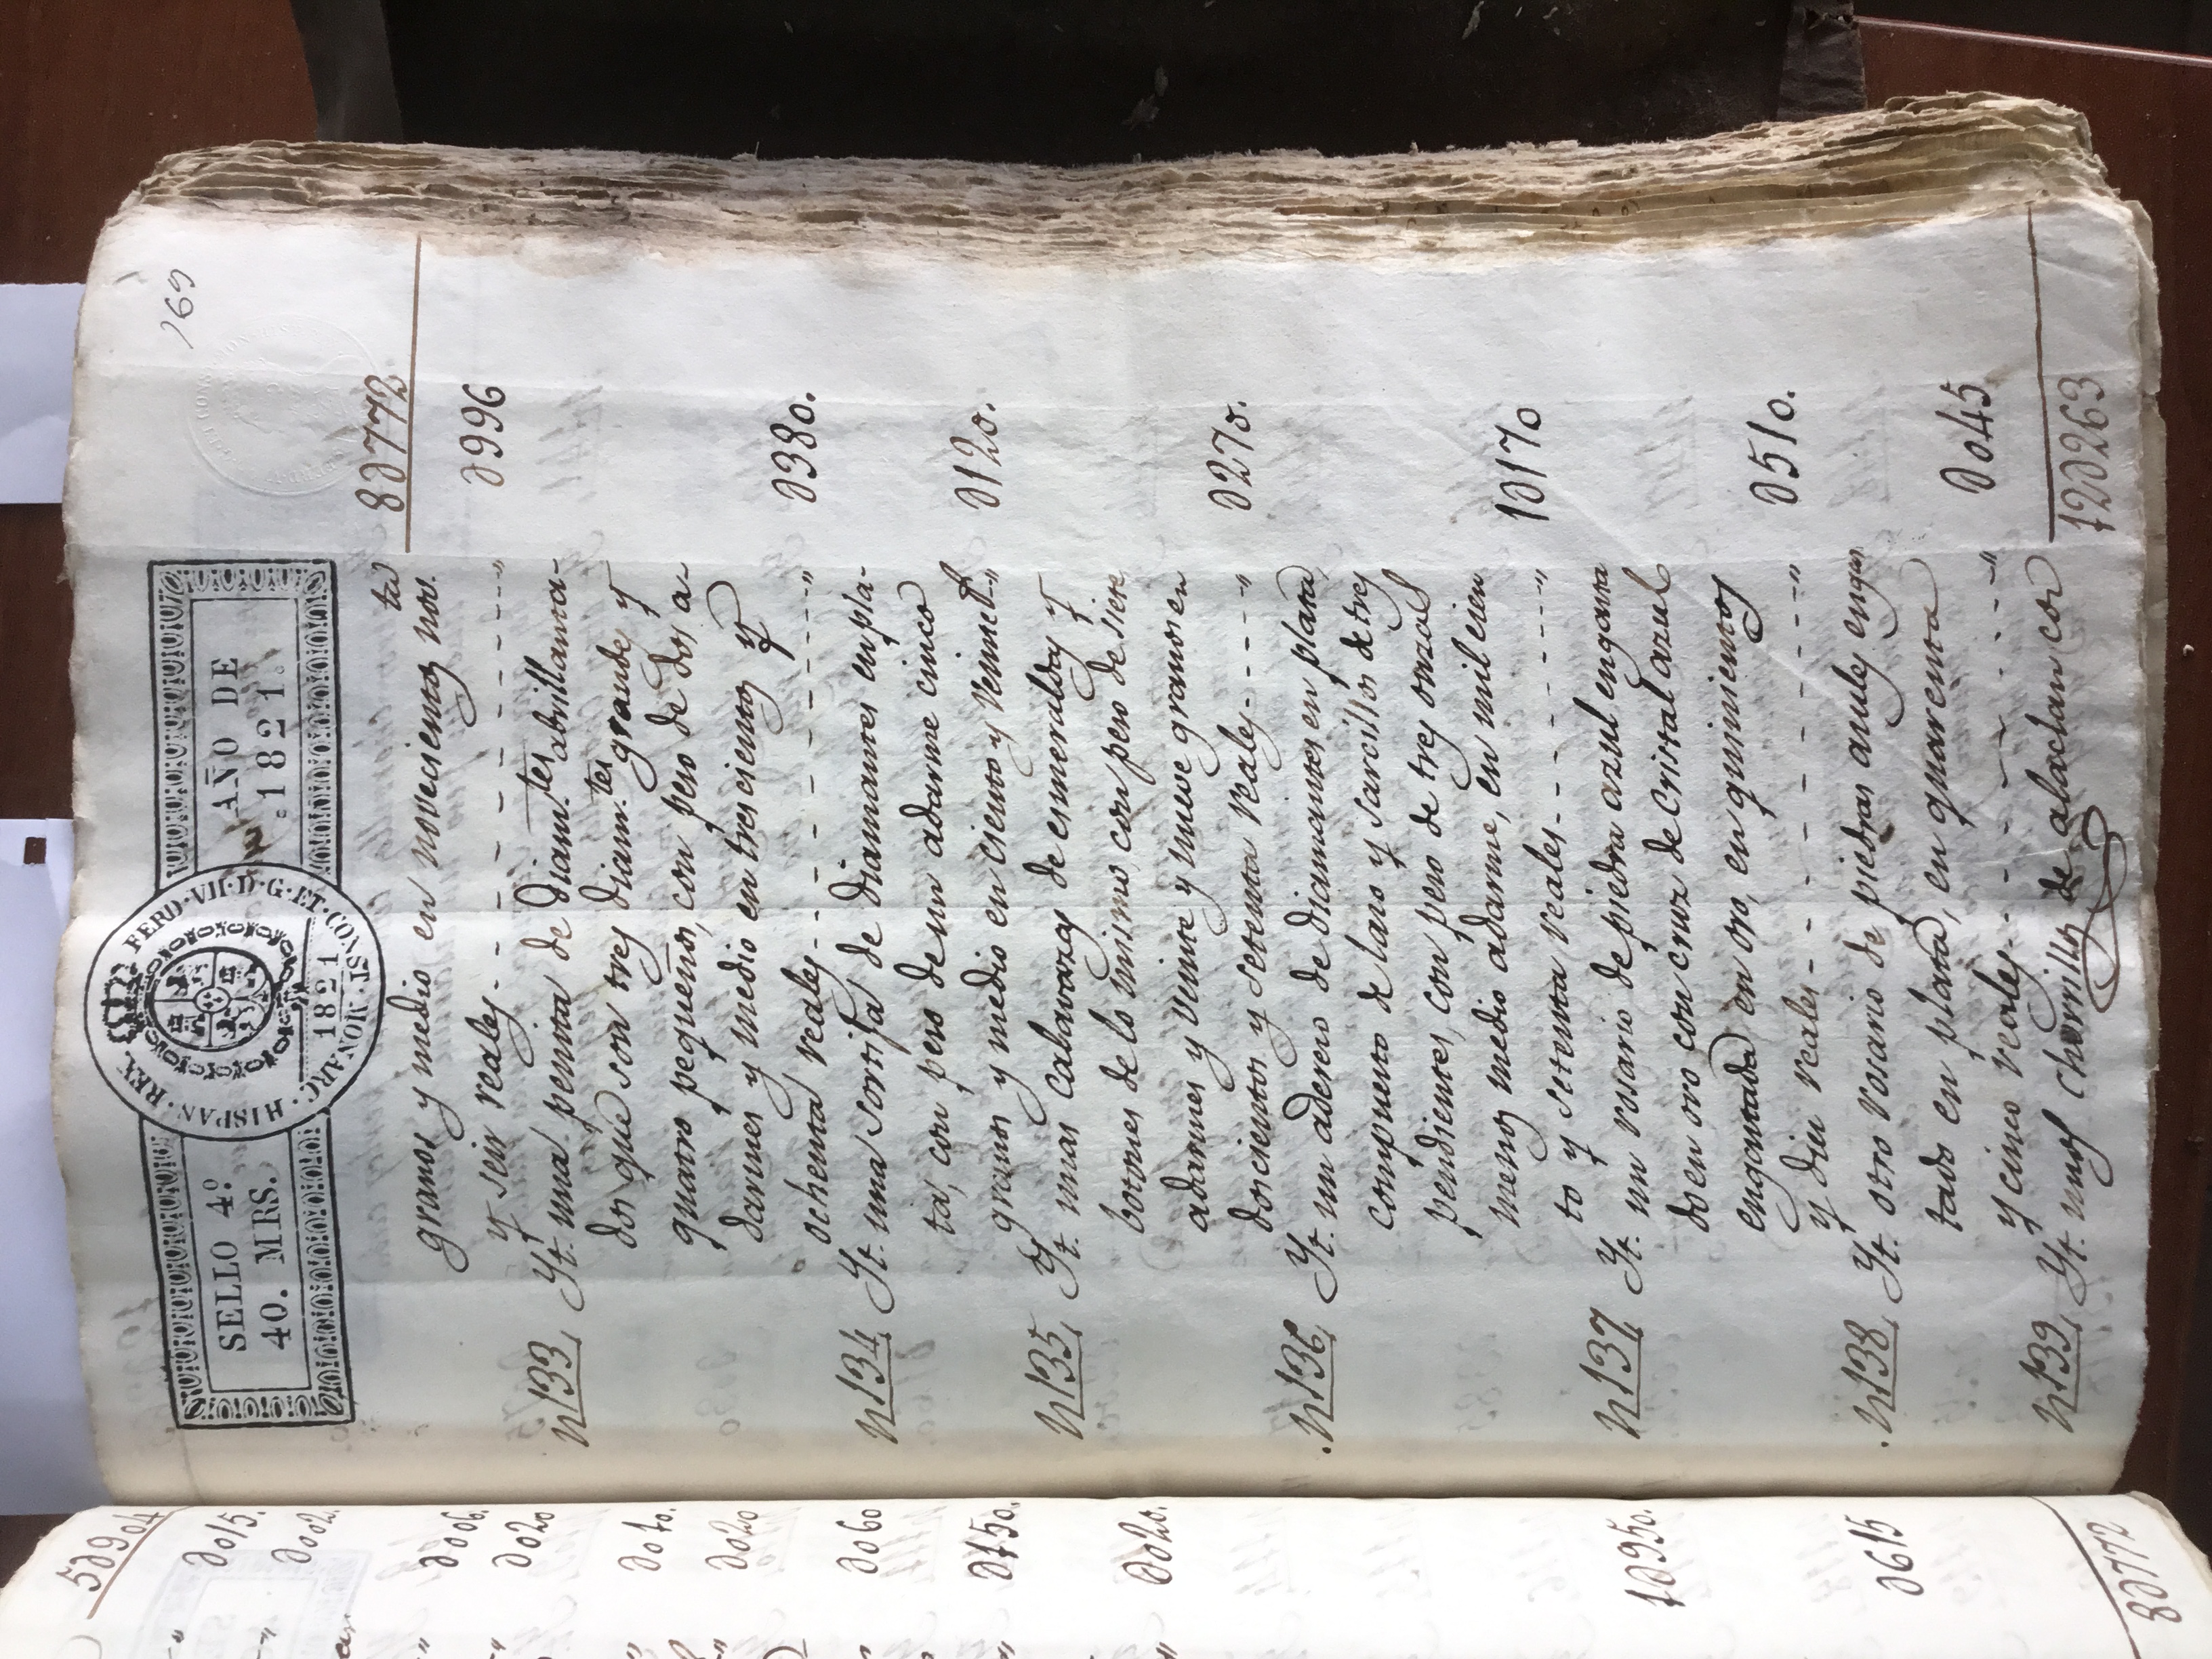 169
SELLO 4º AÑO DE
40. MRS. 1821.
FERD·VII·D·G·ET·CONST·
HISPAN·REX.
ARC·NOR
1821
8∂772
gramos y medio en novecientos nov.ta
y seis reales - - - - - - - - " ∂996
N133, Yt. una pennta de Diam.tes abrillanta-
dos que son tres diam.tes grandes y
quatro pequeños, con peso de dos a-
darmes y medio en trescientos y
ochenta reales - - - - - - - - " ∂380.
N134, Yt. una sortija de Diamantes en pla-
ta, con peso de un adarme cinco
gramos y medio en ciento y veinte r.s " ∂120.
N135, Yt. unas Calavazas de esmeraldas y
botones de lo mismo, con peso de siete
adarmes y veinte y nueve gramos en
doscientos y setenta reales - - - - " ∂270.
N136, Yt. un aderezo de diamantes en plata
compuesto de lazo y sarcillos de tres
pendientes, con peso de tres onzas
menos medio adarme, en mil cien
to y setenta reales - - - - - - - " 1∂170
N137, Yt. un rosario de piedra azul engasta
do en oro con cruz de cristal azul
engastada en oro, en quinientos
y diez reales - - - - - - - - " ∂510.
N138, Yt. otro rosario de piedras azules engas
tado en plata, en quarenta
y cinco reales - - - - - - - " ∂045
N139, Yt. unos chorrillos de alachan con
12∂263
5∂904
∂015.
∂002.
∂006.
∂020
∂070.
∂020
∂060
∂150.
∂020.
1∂950.
∂615
8∂772